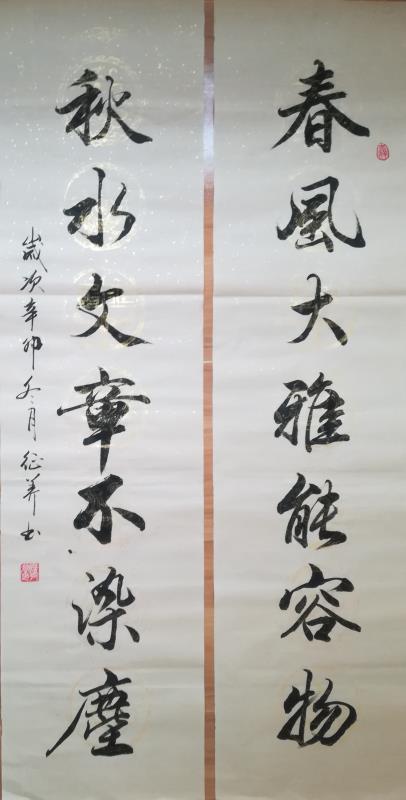 春風大雅能容物
秋水文章不染塵
歲次辛卯冬月征美書